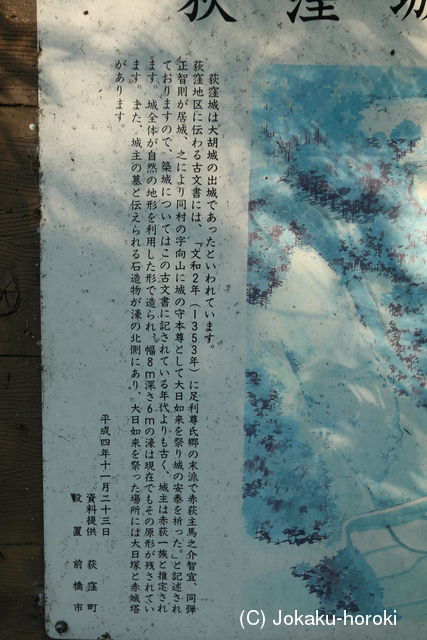 荻窪城
荻窪城は大胡城の出城であったといわれています。
荻窪地区に伝わる古文書には、「文和2年(1353年)に足利尊氏郷の末派で赤荻主馬之介智宜、同弾
正智則が居城、之により同村の字向山に城の守本尊として大日如来を祭り城の安泰を祈った。」と記述され
ておりますので、築城についてはこの古文書に記されている年代よりも古く、城主は赤荻一族と推定され
ます。城全体が自然の地形を利用した形で造られ、幅8m深さ6mの濠は現在でもその原形が残されてい
ます。また、城主の墓と伝えられる石造物が濠の北側にあり、大日如来を祭った場所には大日塚と赤城塔
があります。
平成四年十一月二十三日
資料提供 荻窪町
設置 前橋市
(C) Jokaku-horoki